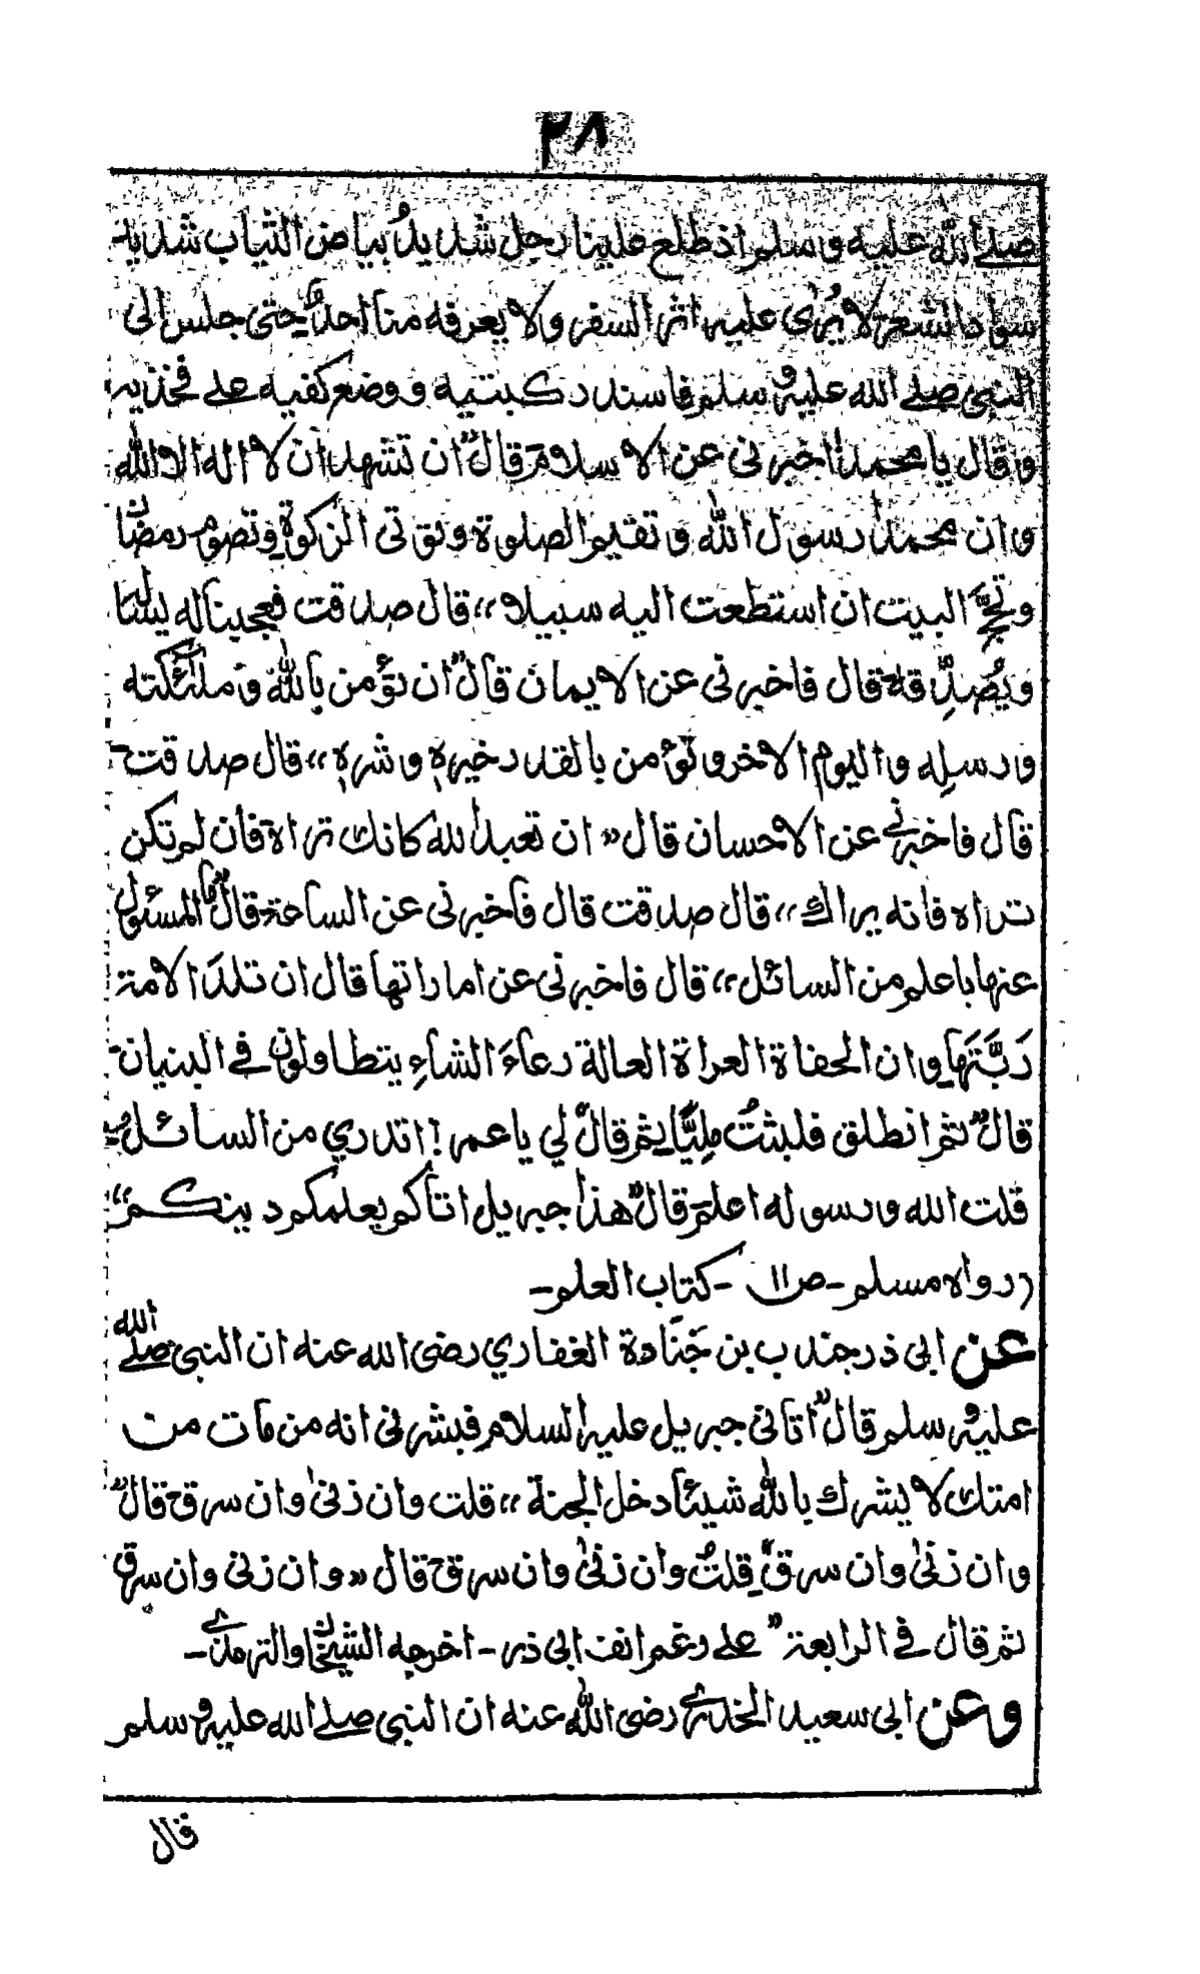 ٢٨
صلے الله عليه وسلم اذ طلع علينا رجل شديدُ بياض الثياب شديد
سواد الشعر لا يُرىٰ عليه اثر السفر ولا يعرفه منا احدٌ حتى جلس الى
النبي صلے الله عليه وسلم فاسند ركبتيه ووضع كفيه علے فخذيه
وقال يا محمد اخبرنى عن الاسلام قال "ان تشهد ان لا اله الا الله
وان محمدا رسول الله وتقيم الصلوة وتؤتى الزكوة وتصوم رمضان
وتحجَّ البيت ان استطعت اليه سبيلا"، قال صدقت فعجبنا له يسأله
ويُصدِّقه قال فاخبرنى عن الايمان قال "ان تؤمن بالله وملٰئكته
ورسلِه واليوم الاخر وتؤمن بالقدر خيرهٖ وشرهٖ"، قال صدقت
قال فاخبرني عن الاحسان قال "ان تعبد الله كانك تراه فان لم تكن
تراه فانه يراك"، قال صدقت قال فاخبرنى عن الساعة قال "ما المسئول
عنها باعلم من السائل"، قال فاخبرنى عن اماراتها قال ان تلدَ الامة
رَبَّتَها وان الحفاة العراة العالة رعاءَ الشاءِ يتطاولون فے البنيان
قال ثم انطلق فلبثتُ مليًّا ثم قال لي يا عمر! اتدري من السائل
قلت الله ورسوله اعلم قال "هذا جبريل اتاكم يعلمكم دينكم"
(رواه مسلم - ص ١١ - كتاب العلم -
عن ابى ذر جندب بن جَنَادة الغفاري رضى الله عنه ان النبى صلے الله
عليه وسلم قال "اتانى جبريل عليه السلام فبشرنى انه من مات من
امتك لا يشرك بالله شيئا دخل الجنة"، قلت وان زنىٰ وان سرق قال "
وان زنىٰ وان سرق" قلتُ وان زنىٰ وان سرق قال "وان زنى وان سرق
ثم قال فے الرابعة "علے رغم انف ابى ذر - اخرجه الشيخان والترمذے -
وعن ابى سعيد الخدرے رضى الله عنه ان النبى صلے الله عليه وسلم
قال